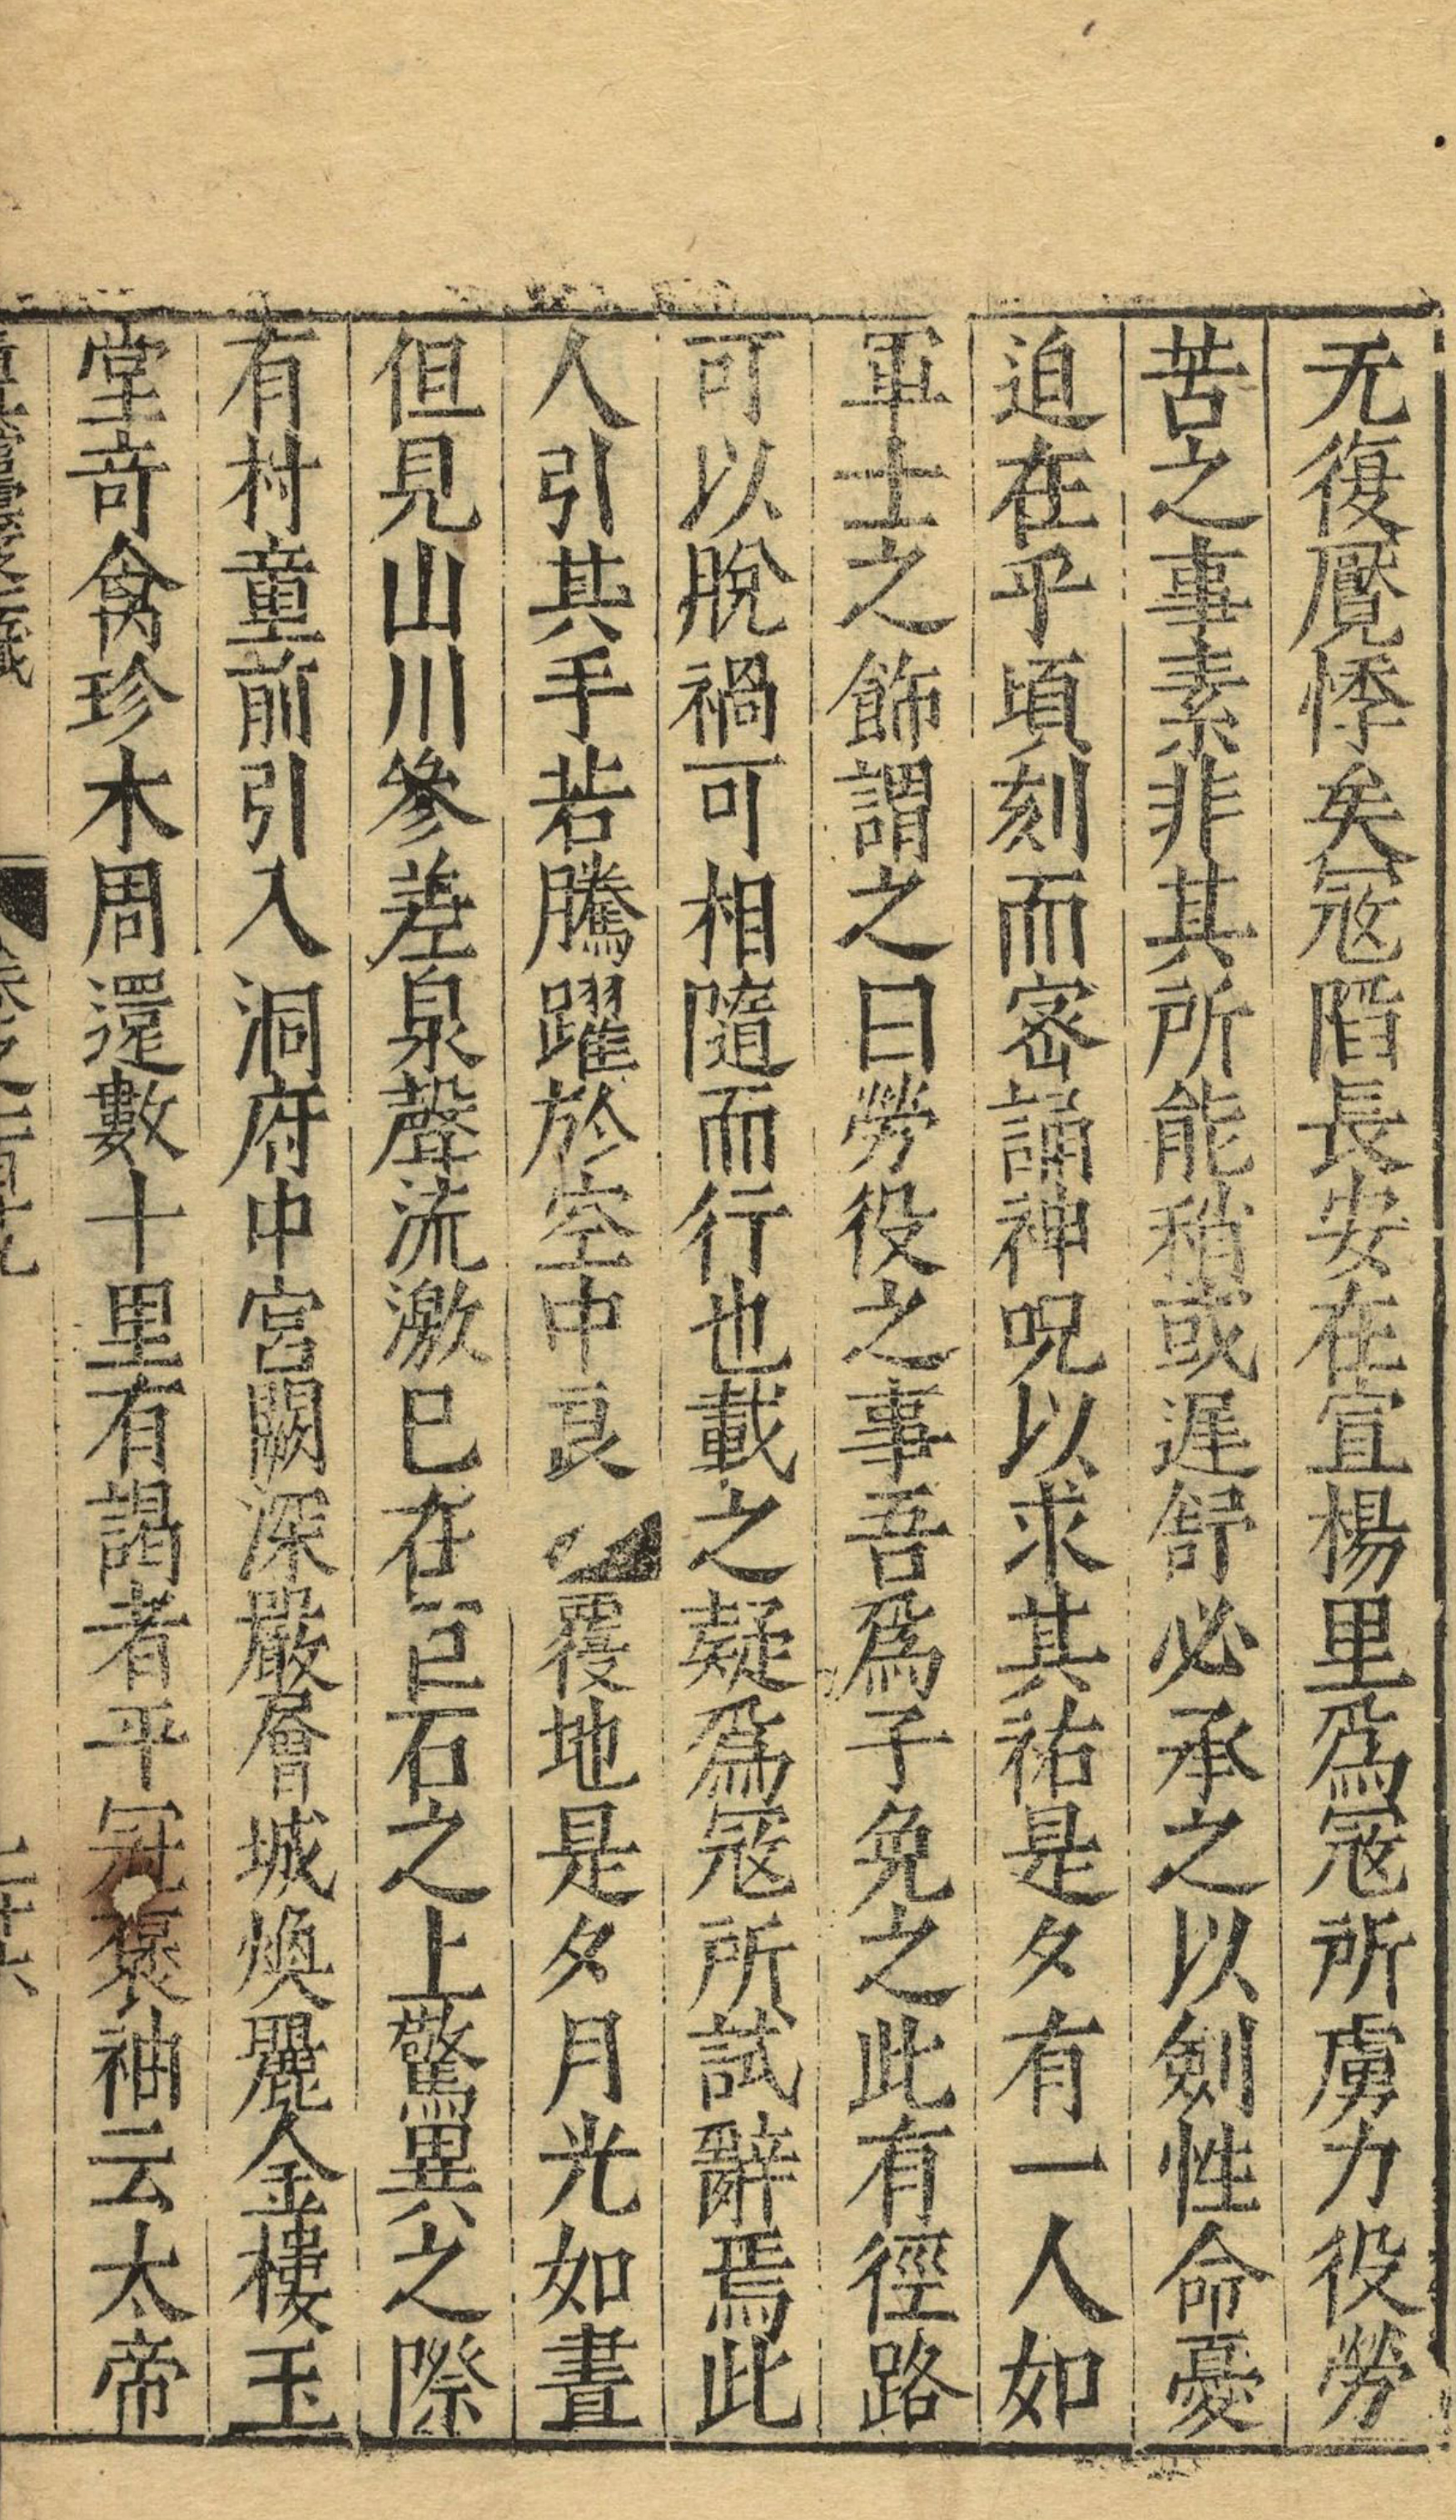 无復魘悸矣冦䧟長安在宣楊里爲冦所虜力役勞
苦之事素非其所能稍或遲舒必承之以劍性命憂
迫在乎頃刻而密誦神呪以求其祐是夕有一人如
軍士之飾謂之曰勞役之事吾爲子免之此有徑路
可以脫禍可相隨而行也載之疑爲冦所試辭焉此
人引其手若騰躍於空中良覆地是夕月光如晝
但見山川參差泉聲流激已在巨石之上驚異之際
有村童前引入洞府中宮闕深嚴層城煥麗金樓玉
堂竒禽珍木周還數十里有謁者平冠褒袖云太帝